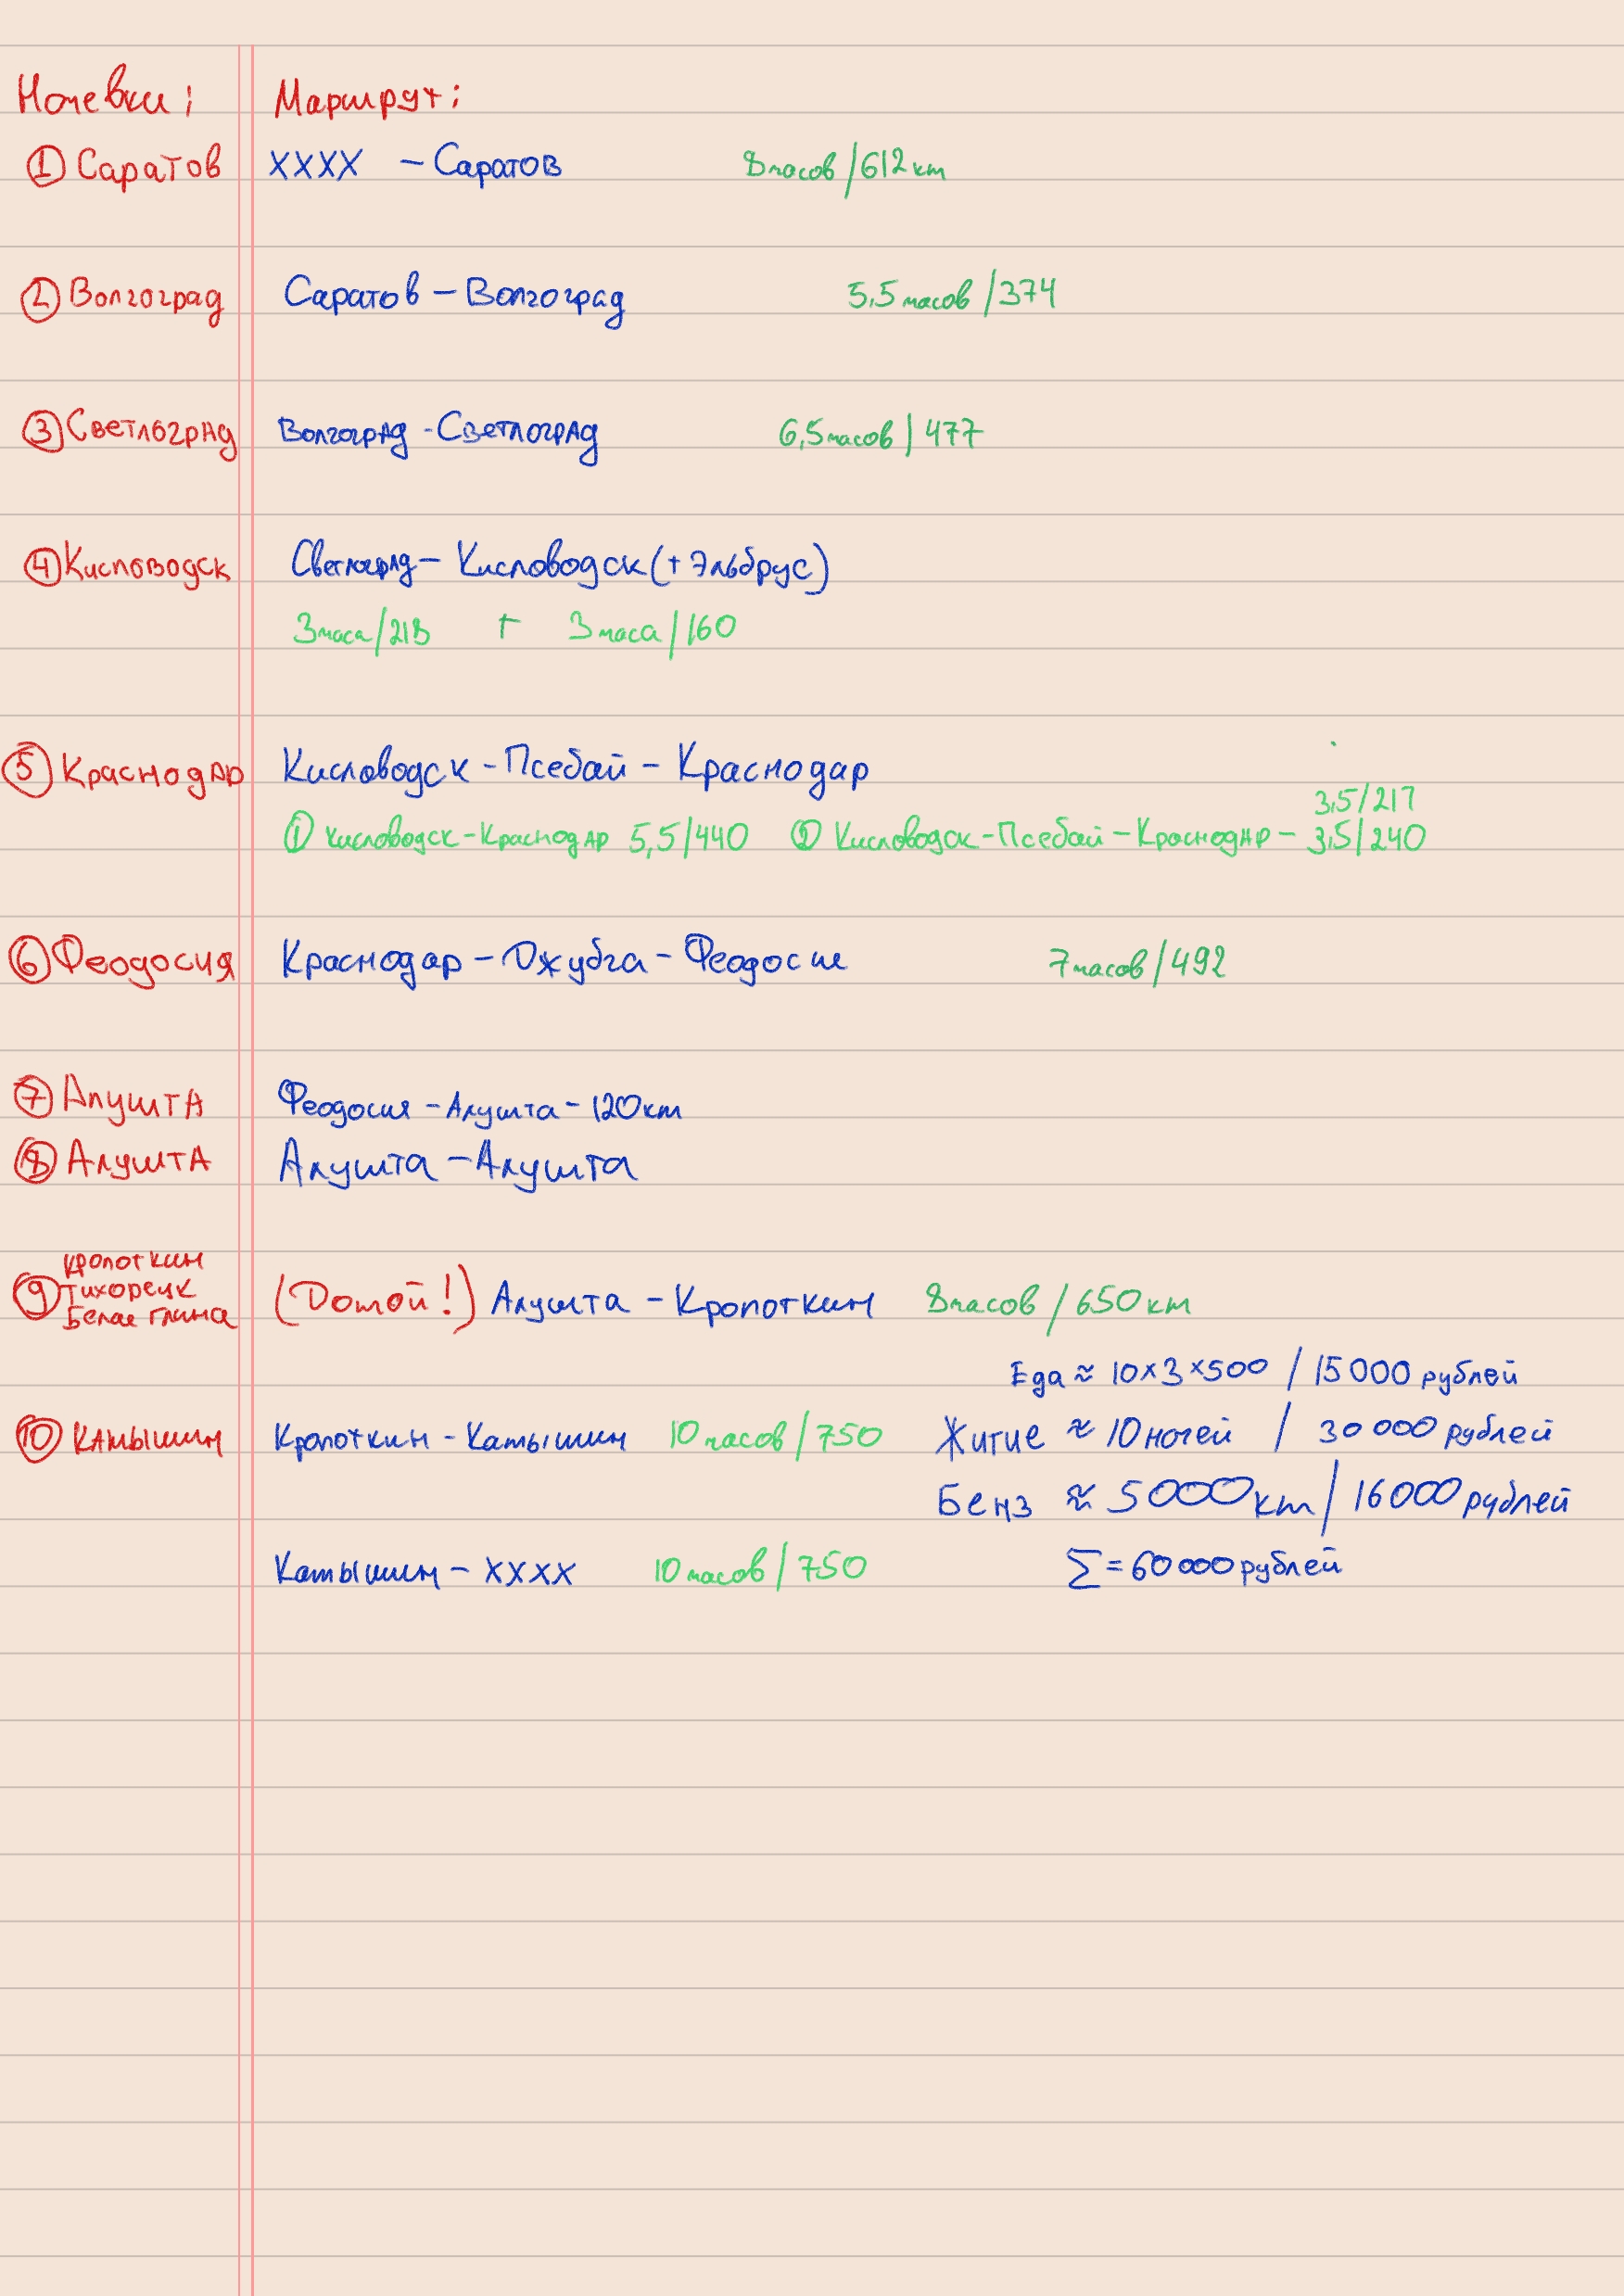 Ночевки: Маршрут:
① Саратов XXXX - Саратов 8 часов/612 км
② Волгоград Саратов - Волгоград 5,5 часов/374
③ Светлоград Волгоград - Светлоград 6,5 часов/477
④ Кисловодск Светлоград - Кисловодск (+ Эльбрус)
3 часа/218 + 3 часа/160
⑤ Краснодар Кисловодск - Псебай - Краснодар
3,5/217
① Кисловодск - Краснодар 5,5/440 ② Кисловодск - Псебай - Краснодар - 3,5/240
⑥ Феодосия Краснодар - Джубга - Феодосия 7 часов/492
⑦ Алушта Феодосия - Алушта - 120 км
⑧ Алушта Алушта - Алушта
Кропоткин
⑨ Тихорецк (Домой!) Алушта - Кропоткин 8 часов/650 км
Белая глина
Еда ≈ 10×3×500 / 15000 рублей
⑩ Камышин Кропоткин - Камышин 10 часов/750 Житие ≈ 10 ночей / 30 000 рублей
Бенз ≈ 5000 км / 16000 рублей
Камышин - XXXX 10 часов/750 Σ = 60 000 рублей